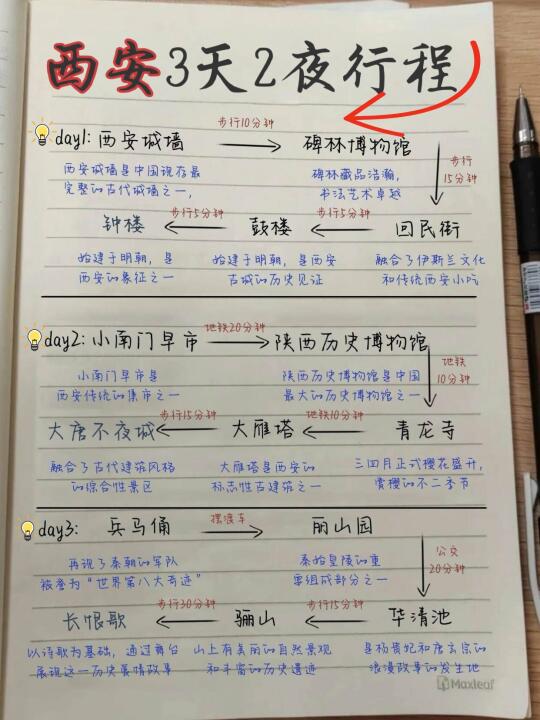 西安3天2夜行程
day1: 西安城墙 步行10分钟 碑林博物馆
西安城墙是中国现存最
完整的古代城墙之一,
碑林藏品浩瀚,
书法艺术卓越
步行
15分钟
钟楼 步行5分钟 鼓楼 步行5分钟 回民街
始建于明朝, 是
西安的象征之一
始建于明朝, 是西安
古城的历史见证
融合了伊斯兰文化
和传统西安小吃
day2: 小南门早市 地铁20分钟 陕西历史博物馆
小南门早市是
西安传统的集市之一
陕西历史博物馆是中国
最大的历史博物馆之一
地铁
10分钟
大唐不夜城 步行15分钟 大雁塔 地铁10分钟 青龙寺
融合了古代建筑风格
的综合性景区
大雁塔是西安的
标志性古建筑之一
三四月正式樱花盛开,
赏樱的不二季节
day3: 兵马俑 摆渡车 丽山园
再现了秦朝的军队
被誉为“世界第八大奇迹”
秦始皇陵的重
要组成部分之一
公交
20分钟
长恨歌 步行30分钟 骊山 步行15分钟 华清池
以诗歌为基础, 通过舞台
展现这一历史爱情故事
山上有美丽的自然景观
和丰富的历史遗迹
是杨贵妃和唐玄宗的
浪漫故事的发生地
Maxleaf